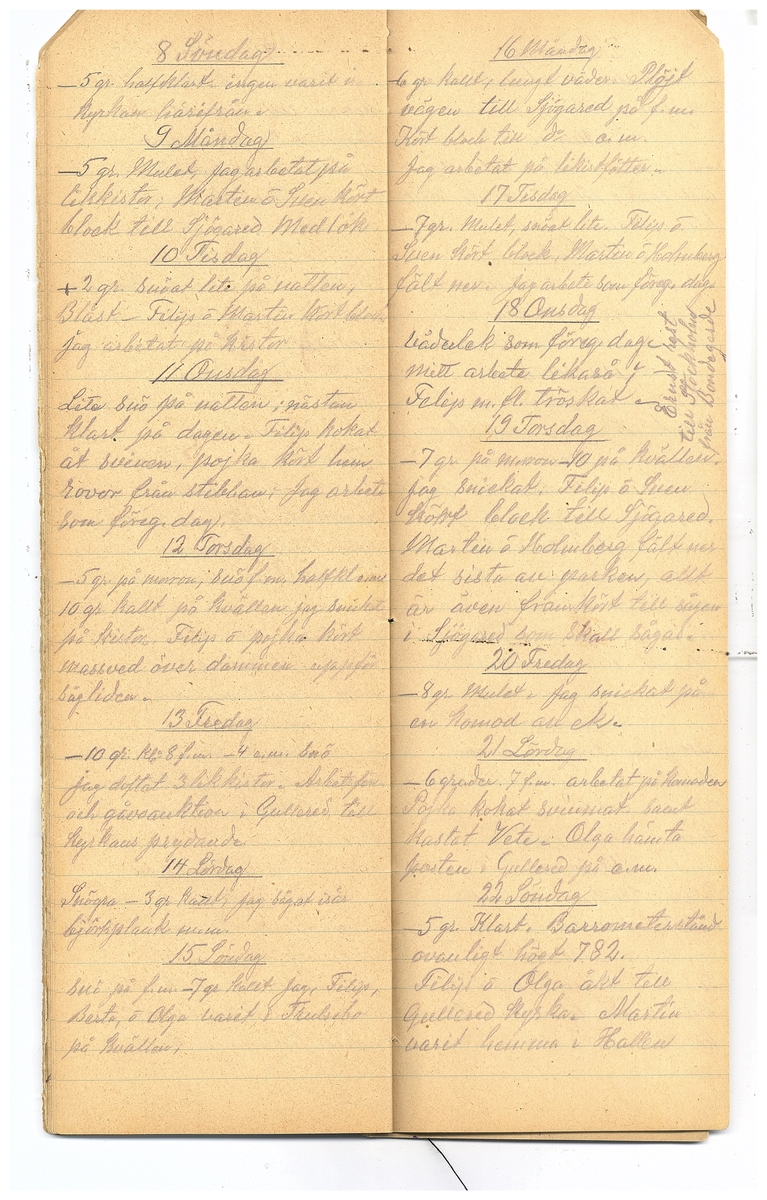 8 Söndag
—5 gr. halfklart. ingen varit i
kyrkan härifrån.
9 Måndag
—5 gr. Mulet, jag arbetat på
likkistor, Martin ö Sven kört
block till Sjögared Medlök
10 Tisdag
+2 gr. snöat lite på natten,
Blåst — Filip ö Martin kört block
jag arbetat på kistor
11 Onsdag
Lite snö på natten, nästan
klart på dagen. Filip kokat
åt svinen, pojka kört hem
rovor från stubban, jag arbete
som föreg. dag.
12 Torsdag
—5 gr. på moron, snö f.m. halfkl e.m.
10 gr. kallt på kvällen jag snickat
på kistor. Filip ö pojka kört
massved över dammen uppför
sågliden.
13 Fredag
—10 gr. kl. 8 f.m. —4 e.m. snö
jag doftat 3 likkistor. Arbetsfören
och gåvoauktion i Gullered till
kyrkans prydande.
14 Lördag
Snögra — 3 gr kallt, jag sågat isär
björkplank m.m.
15 Söndag
snö på f.m. —7 gr kallt jag, Filip,
Berta, ö Olga varit i Trulsebo
på kvällen,
16 Måndag
6 gr kallt, lungt väder. Plöjt
vägen till Sjögared på f.m.
Kört block till do e.m.
Jag arbetat på likistfötter.
17 Tisdag
—7 gr. Mulet, snöat lite. Filip ö
Sven kört block, Martin ö Holmberg
fält ner. Jag arbete som föreg. dag.
18 Onsdag
Väderlek som föreg. dag
mitt arbete likaså
Filip m. fl. tröskat
Ernst rest
till Stockholm
från Bondegärde
19 Torsdag
—7 gr på moron —10 på kvällen.
Jag snickat, Filip ö Sven
kört block till Sjögared.
Martin ö Holmberg fält ner
det sista av parken, allt
är även framkört till sågen
i Sjögared som skall sågas.
20 Fredag
—8 gr Mulet. Jag snickat på
en komod av ek.
21 Lördag
—6 grader 7 f.m. arbetat på komoden
Pojka kokat svinmat samt
kastat Vete. Olga hämta
posten i Gullered på e.m.
22 Söndag
—5 gr. Klart. Barrometerstånd
ovanligt högt 782.
Filip ö Olga åkt till
Gullered kyrka. Martin
varit hemma i Hallen